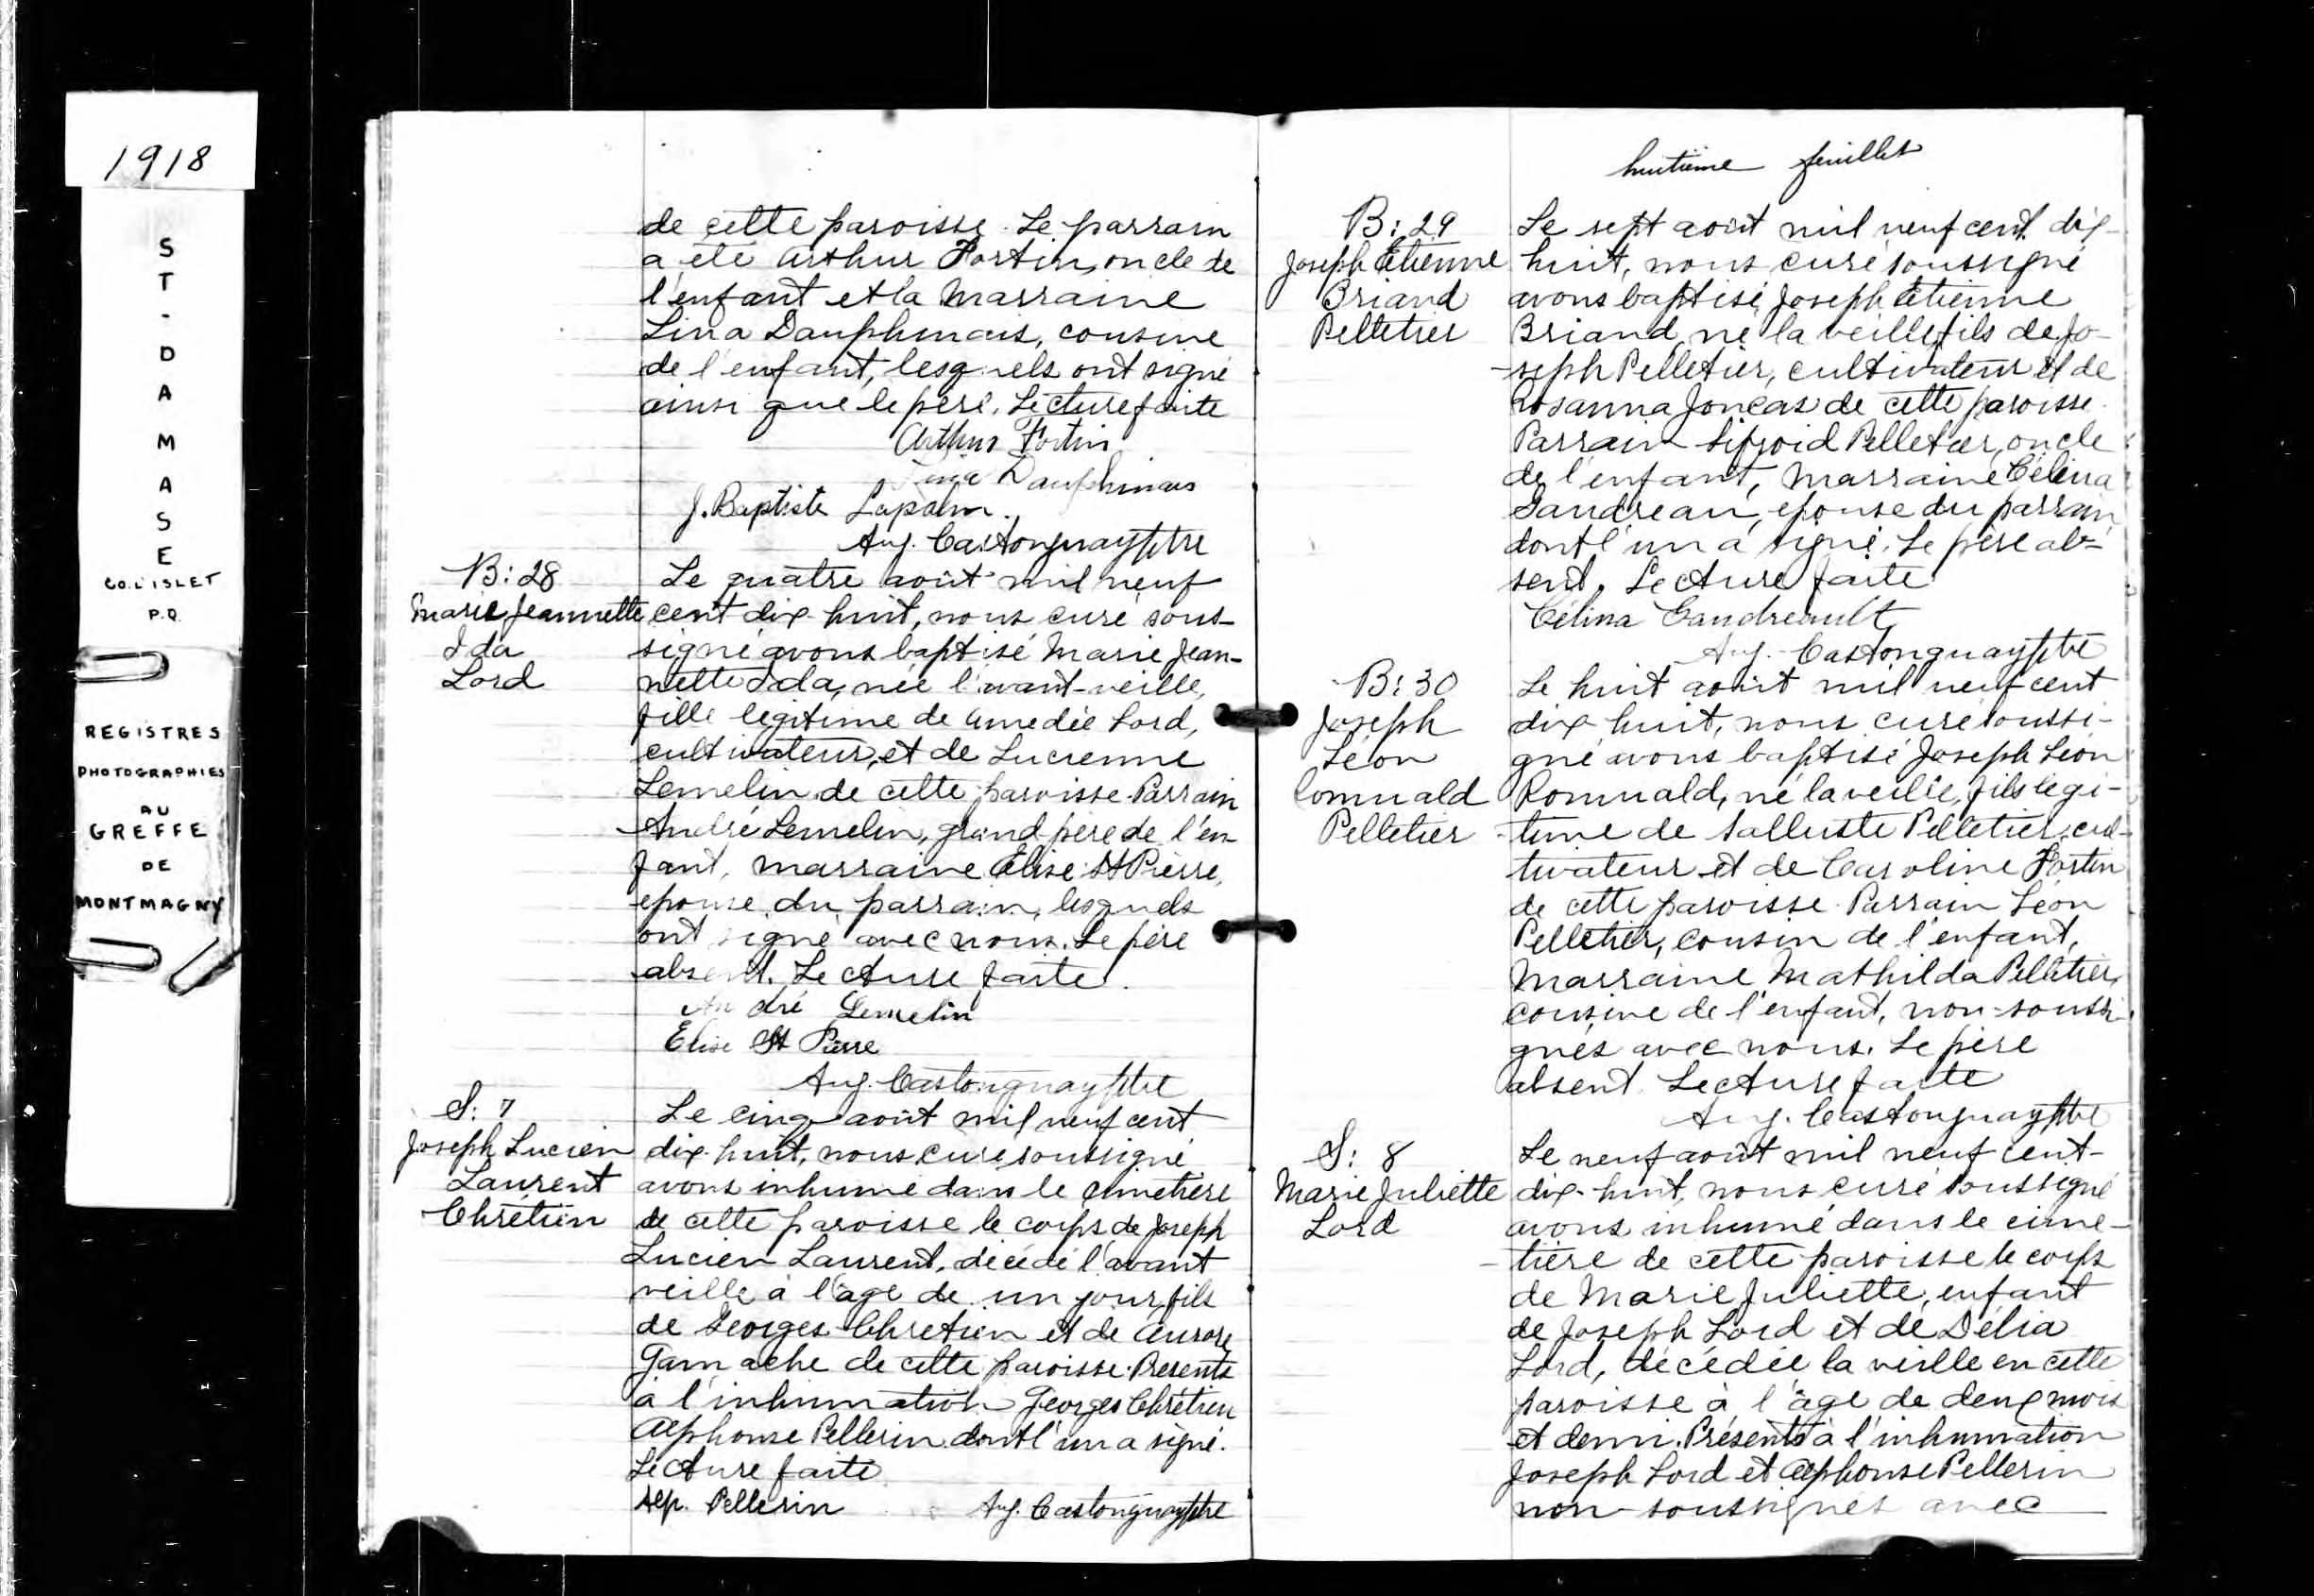 1918
ST-DAMASE
CO. L'ISLET
P.Q.
REGISTRES
PHOTOGRAPHIES
AU
GREFFE
DE
MONTMAGNY
de cette paroisse. Le parrain
a été Arthur Fortin, oncle de
l'enfant et la Marraine
Lina Dauphinais, cousine
de l'enfant, lesquels ont signé
ainsi que le père. Lecture faite
Arthur Fortin
Lina Dauphinais
J. Baptiste
Aug. Castonguay ptre
B: 28
Marie Jeannette
Ida
Lord
Le quatre août mil neuf
cent dix-huit, nous curé sous-
signé avons baptisé Marie Jean-
nette Ida, née l'avant-veille,
fille légitime de Amedée Lord,
cultivateur, et de Lucienne
Lemelin de cette paroisse. Parrain
André Lemelin, grand-père de l'en-
fant, marraine Elise St Pierre,
épouse du parrain, lesquels
ont signé avec nous. Le père
absent. Lecture faite.
André Lemelin
Elise St Pierre
Aug. Castonguay ptre
S: 7
Joseph Lucien
Laurent
Chrétien
Le cinq août mil neuf cent
dix-huit, nous curé soussigné
avons inhumé dans le cimetière
de cette paroisse le corps de Joseph
Lucien Laurent, décédé l'avant
veille à l'âge de un jour, fils
de Georges Chretien et de Aurore
Gamache de cette paroisse. Présents
à l'inhumation Georges Chrétien
Alphonse Pellerin dont l'un a signé.
Lecture faite
Alp. Pellerin Aug. Castonguay ptre
huitième feuillet
B: 29
Joseph Etienne
Briand
Pelletier
Le sept août mil neuf cent dix-
huit, nous curé soussigné
avons baptisé Joseph Etienne
Briand, né la veille, fils de Jo-
-seph Pelletier, cultivateur et de
Rosanna Joncas de cette paroisse.
Parrain Sifroid Pelletier, oncle
de l'enfant, Marraine Célina
Gaudreau, épouse du parrain
dont l'un a signé. Le père ab-
sent. Lecture faite
Célina Gaudreault
Aug. Castonguay ptre
B: 30
Joseph
Léon
Romuald
Pelletier
Le huit août mil neuf cent
dix-huit, nous curé soussi-
gné avons baptisé Joseph Léon
Romuald, né la veille, fils légi-
-time de Salluste Pelletier, cul-
tivateur et de Caroline Fortin
de cette paroisse. Parrain Léon
Pelletier, cousin de l'enfant,
Marraine Mathilda Pelletier,
cousine de l'enfant, non-soussi-
gnés avec nous. Le père
absent. Lecture faite
Aug. Castonguay ptre
S: 8
Marie Juliette
Lord
Le neuf août mil neuf cent-
dix-huit, nous curé soussigné
avons inhumé dans le cime-
-tière de cette paroisse le corps
de Marie Juliette, enfant
de Joseph Lord et de Délia
Lord, décédée la veille en cette
paroisse à l'âge de deux mois
et demi. Présents à l'inhumation
Joseph Lord et Alphonse Pellerin
non-soussignés avec